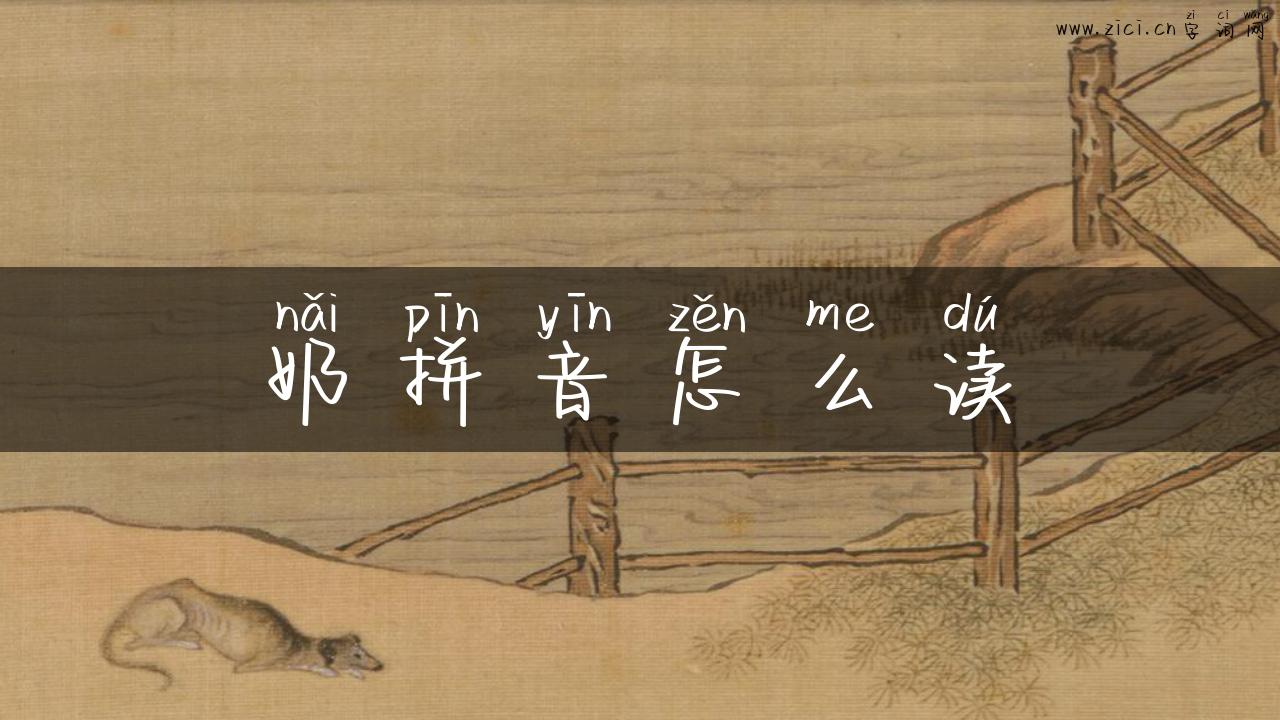 zì cí wǎng
www.zici.cn 字词网
nǎi pīn yīn zěn me dú
奶拼音怎么读